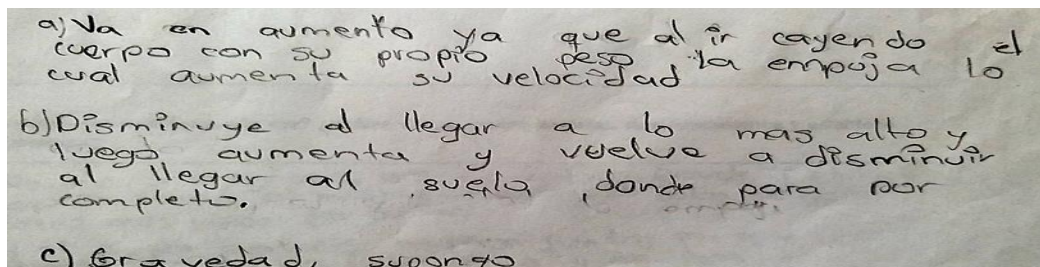 a) Va en aumento ya que al ir cayendo el
cuerpo con su propio peso la empuja lo
cual aumenta su velocidad
b) Disminuye al llegar a lo mas alto y
luego aumenta y vuelve a disminuir
al llegar al suelo, donde para por
completo.
c) Gravedad, supongo